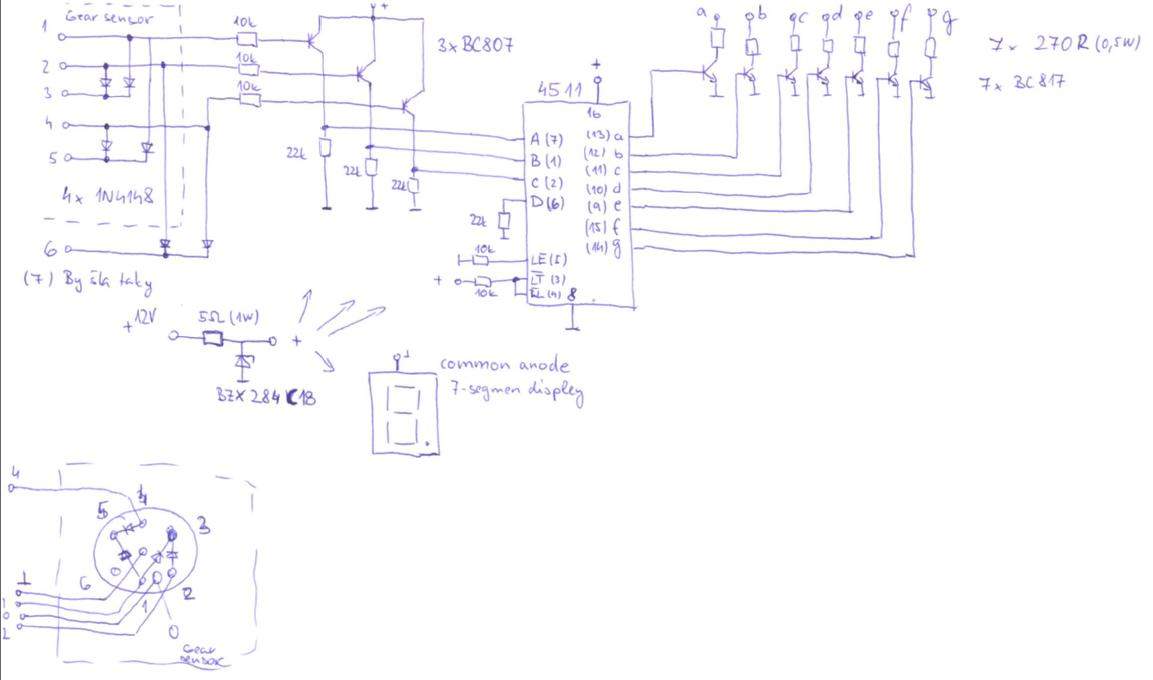 Gear sensor
1
2
3
4
5
6
4x 1N4148
(7) By šla taky
10k
10k
10k
+
3x BC807
22k
22k
22k
22k
4511
+
16
A (7)
B (1)
C (2)
D (6)
LE (5)
LT (3)
8
(13) a
(12) b
(11) c
(10) d
(9) e
(15) f
(14) g
10k
+
10k
a
b
c
d
e
f
g
7x 270R (0,5W)
7x BC817
+12V
5Ω (1W)
+
BZX 284 C18
common anode
7-segmen display
4
5
4
3
6
1
2
1
1
0
2
Gear
sensor